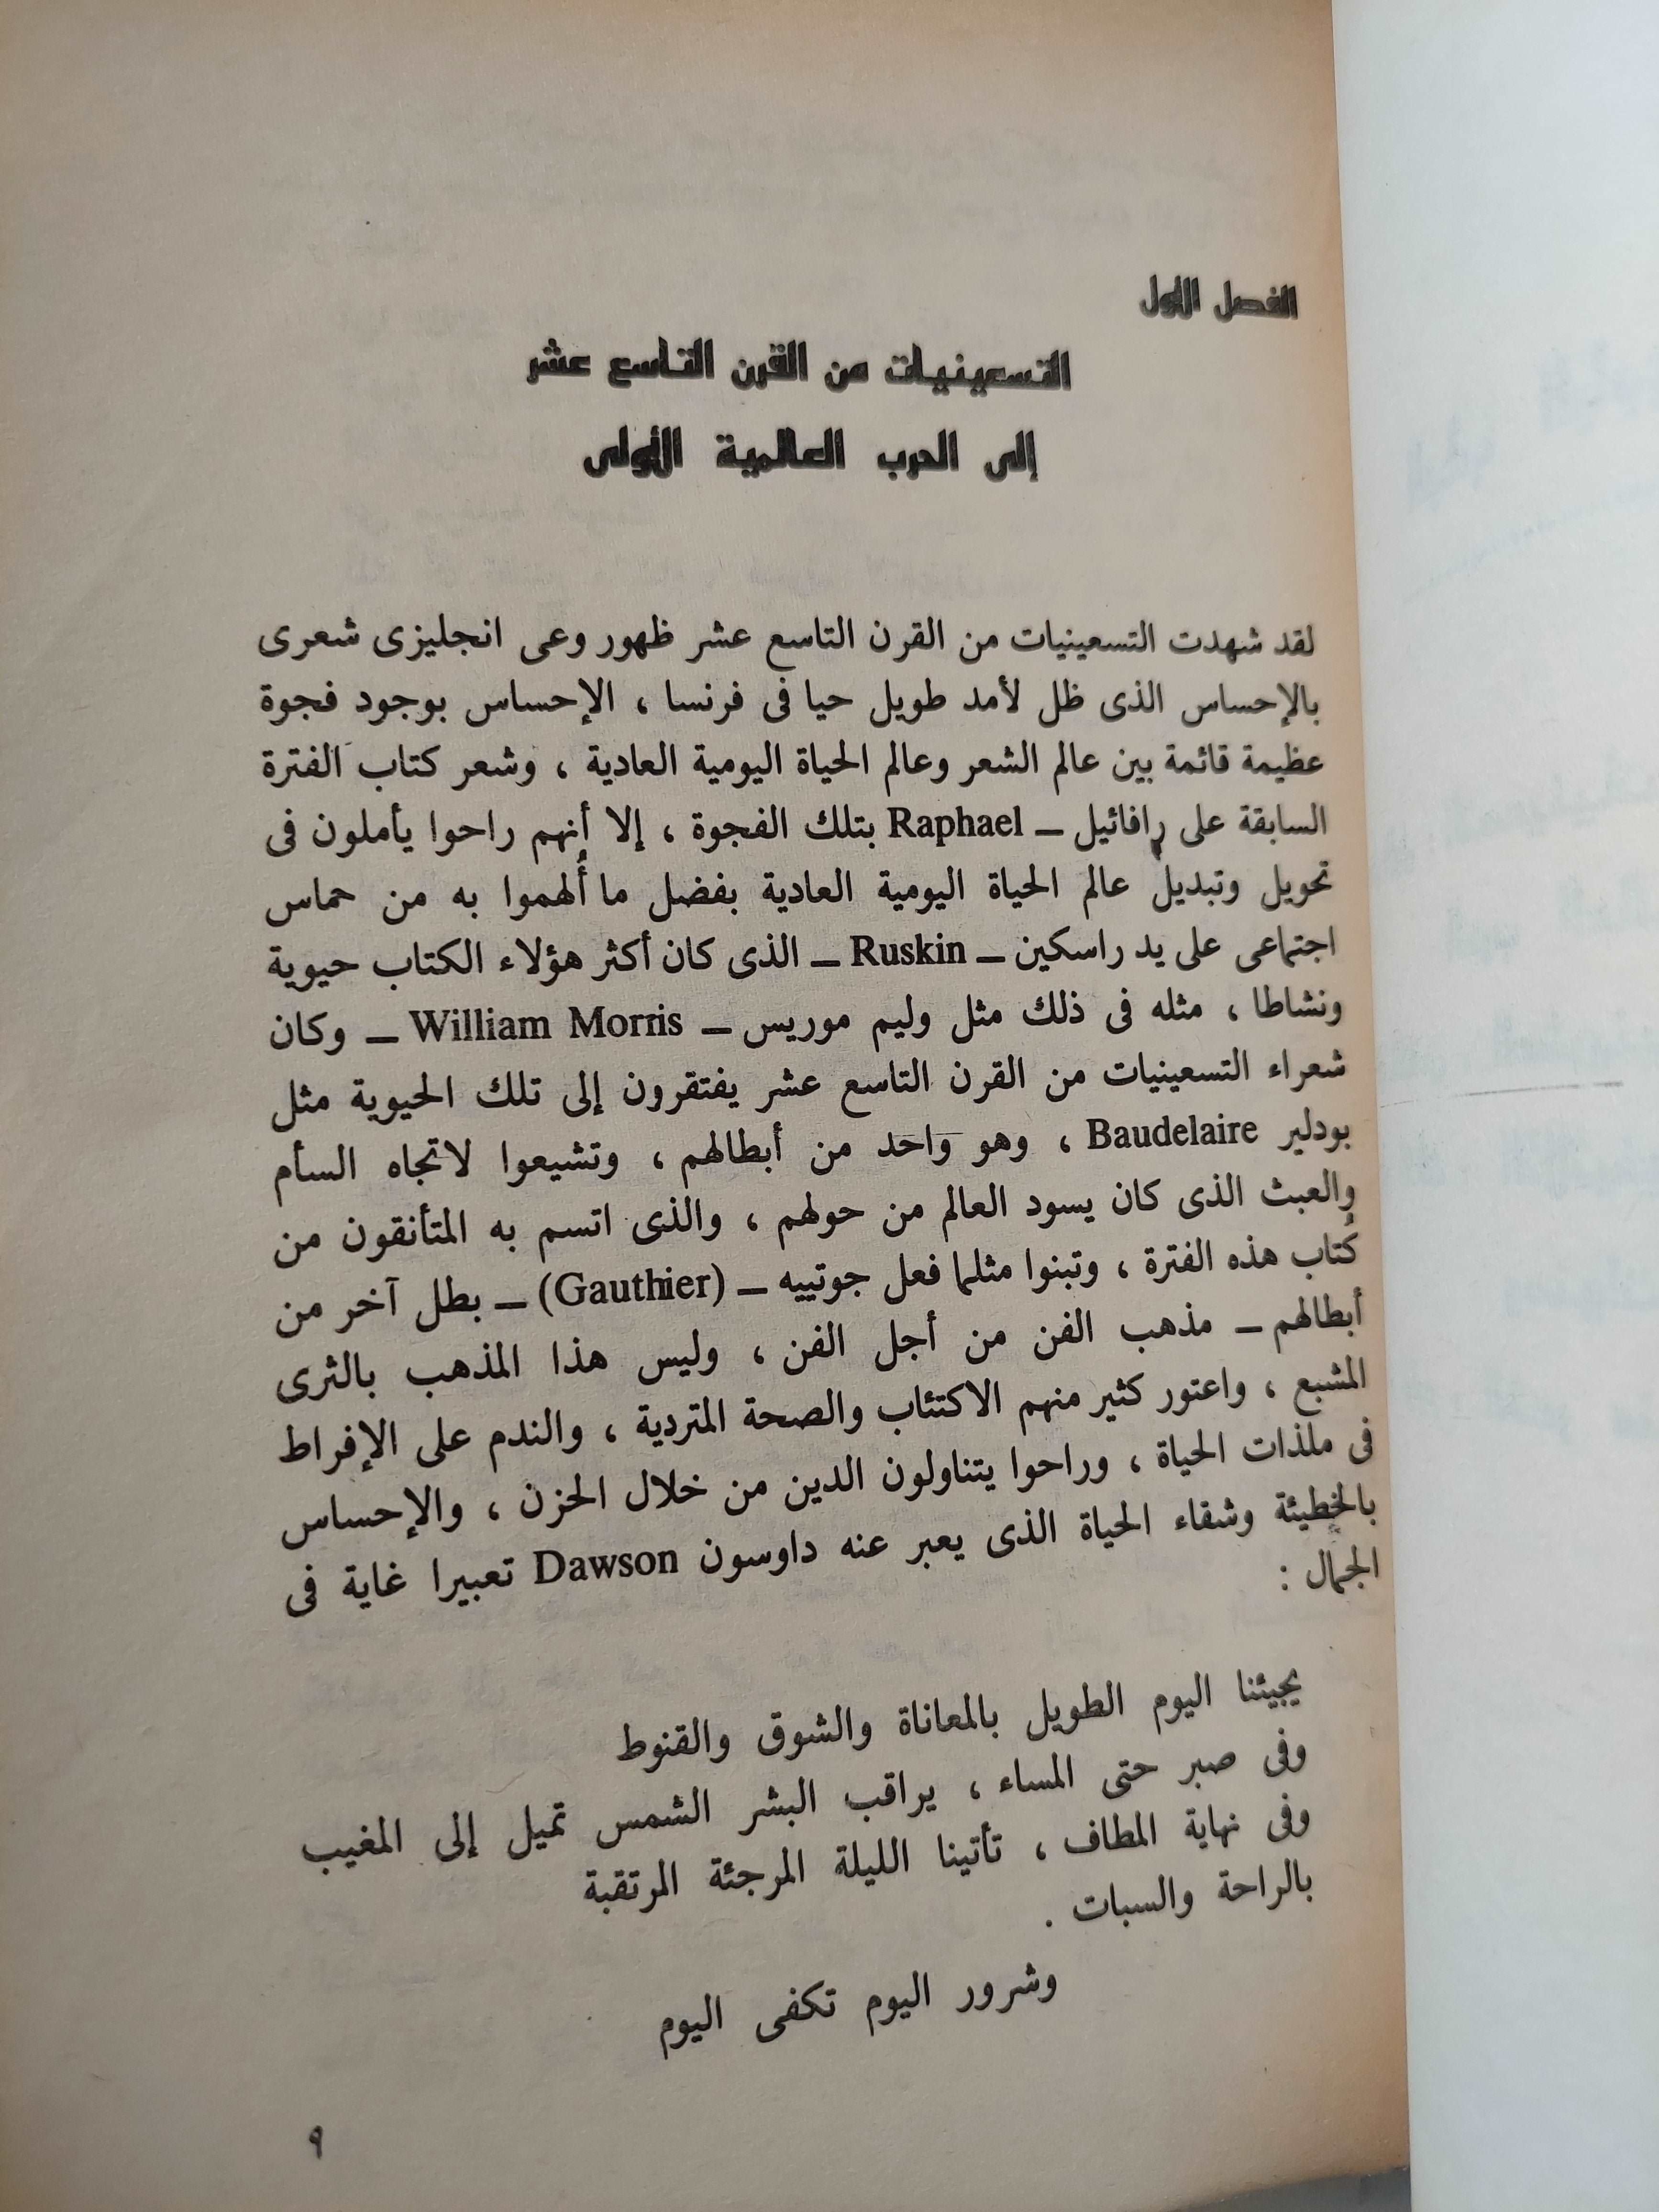 الفصل الأول
التسعينيات من القرن التاسع عشر
إلى الحرب العالمية الأولى
لقد شهدت التسعينيات من القرن التاسع عشر ظهور وعى انجليزى شعرى
بالإحساس الذى ظل لأمد طويل حيا فى فرنسا ، الإحساس بوجود فجوة
عظيمة قائمة بين عالم الشعر وعالم الحياة اليومية العادية ، وشعر كتاب الفترة
السابقة على رافائيل ــ Raphael بتلك الفجوة ، إلا أنهم راحوا يأملون فى
تحويل وتبديل عالم الحياة اليومية العادية بفضل ما أُلهموا به من حماس
اجتماعى على يد راسكين ــ Ruskin ــ الذى كان أكثر هؤلاء الكتاب حيوية
ونشاطا ، مثله فى ذلك مثل وليم موريس ــ William Morris ــ وكان
شعراء التسعينيات من القرن التاسع عشر يفتقرون إلى تلك الحيوية مثل
بودلير Baudelaire ، وهو واحد من أبطالهم ، وتشيعوا لاتجاه السأم
والعبث الذى كان يسود العالم من حولهم ، والذى اتسم به المتأنقون من
كُتاب هذه الفترة ، وتبنوا مثلما فعل جوتييه ــ (Gauthier) ــ بطل آخر من
أبطالهم ــ مذهب الفن من أجل الفن ، وليس هذا المذهب بالثرى
المشبع ، واعتور كثير منهم الاكتئاب والصحة المتردية ، والندم على الإفراط
فى ملذات الحياة ، وراحوا يتناولون الدين من خلال الحزن ، والإحساس
بالخطيئة وشقاء الحياة الذى يعبر عنه داوسون Dawson تعبيرا غاية فى
الجمال :
يجيئنا اليوم الطويل بالمعاناة والشوق والقنوط
وفى صبر حتى المساء ، يراقب البشر الشمس تميل إلى المغيب
وفى نهاية المطاف ، تأتينا الليلة المرجئة المرتقبة
بالراحة والسبات .
وشرور اليوم تكفى اليوم
٩